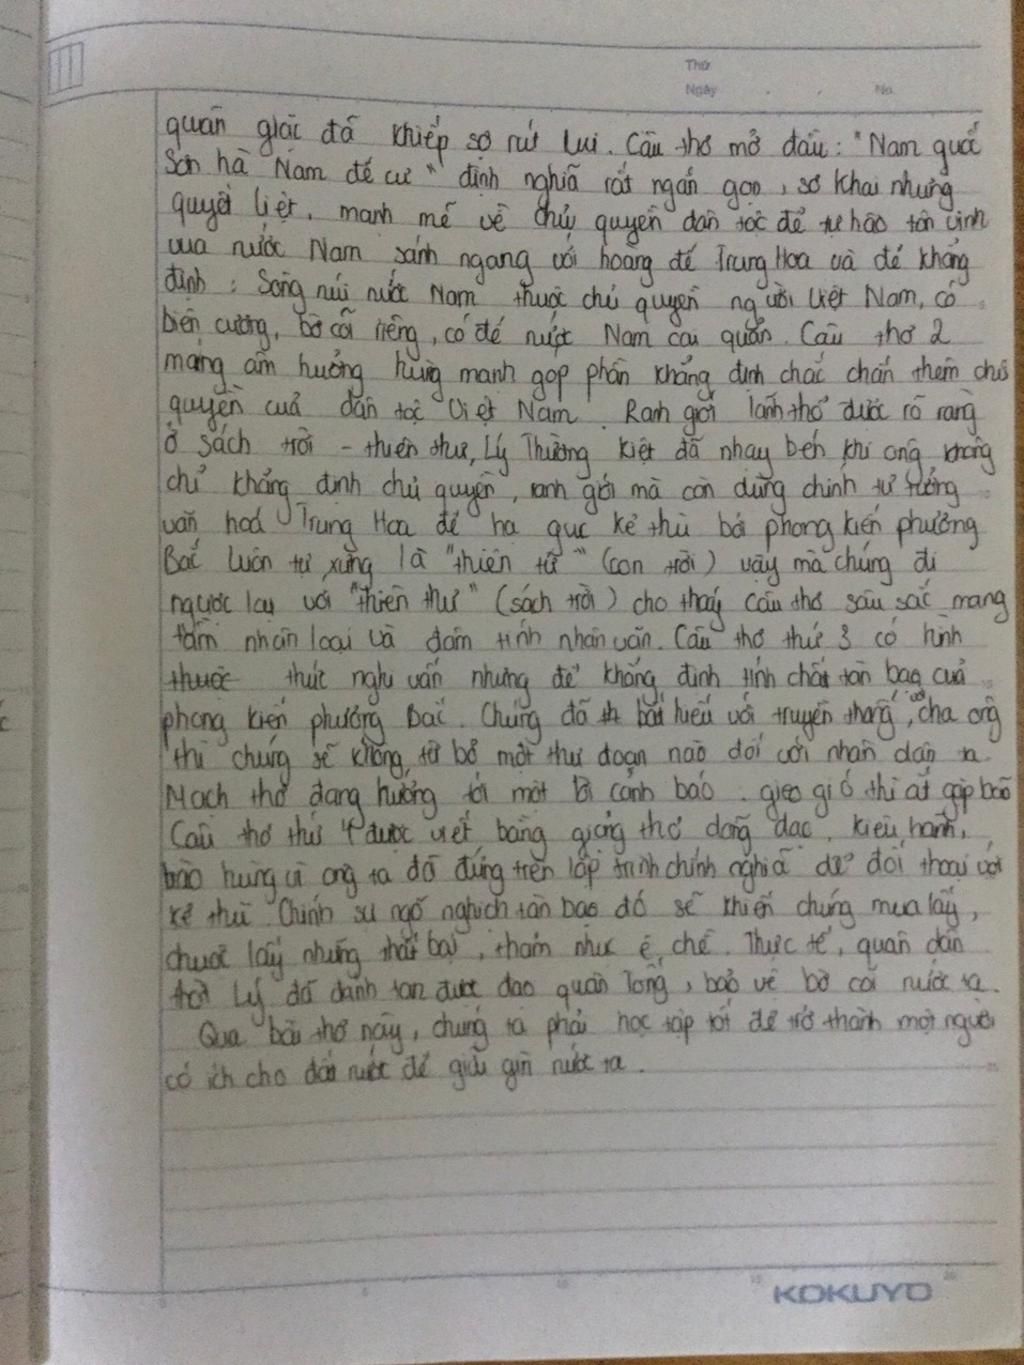 Thứ
Ngày No.
quân giặc đã khiếp sợ rút lui. Câu thơ mở đầu: "Nam quốc
Sơn hà Nam đế cư" định nghĩa rất ngắn gọn, sơ khai nhưng
quyết liệt, mạnh mẽ về chủ quyền dân tộc để tự hào tôn vinh
vua nước Nam sánh ngang với hoàng đế Trung Hoa và để khẳng
định: Sông núi nước Nam thuộc chủ quyền người Việt Nam, có
biên cương, bờ cõi riêng, có đế nước Nam cai quản. Câu thơ 2
mang âm hưởng hùng mạnh góp phần khẳng định chắc chắn thêm chủ
quyền của dân tộc Việt Nam. Ranh giới lãnh thổ được rõ ràng
ở sách trời - thiên thư, Lý Thường Kiệt đã nhạy bén khi ông không
chỉ khẳng định chủ quyền, ranh giới mà còn dùng chính tư tưởng
văn hoá Trung Hoa để hạ gục kẻ thù bởi phong kiến phương
Bắc luôn tự xưng là "thiên tử" (con trời) vậy mà chúng đi
ngược lại với "thiên thư" (sách trời) cho thấy câu thơ sâu sắc mang
tầm nhân loại và đậm tính nhân văn. Câu thơ thứ 3 có hình
thức nghi vấn nhưng để khẳng định tính chất tàn bạo của
phong kiến phương Bắc. Chúng đã bất hiếu với truyền thống, với cha ông
thì chúng sẽ không từ bỏ một thủ đoạn nào đối với nhân dân ta.
Mạch thơ đang hướng tới một lời cảnh báo. gieo gió thì ắt gặp bão
Câu thơ thứ 4 được viết bằng giọng thơ dõng dạc, kiêu hãnh,
hào hùng vì ông ta đã đứng trên lập trình chính nghĩa để đối thoại với
kẻ thù. Chính sự ngỗ nghịch tàn bạo đó sẽ khiến chúng mua lấy,
chuốc lấy những thất bại, thảm như ê chề. Thực tế, quân dân
thời Lý đã đánh tan được đạo quân Tống, bảo vệ bờ cõi nước ta.
Qua bài thơ này, chúng ta phải học tập tốt để trở thành một người
có ích cho đất nước để giữ gìn nước ta.
KOKUYO